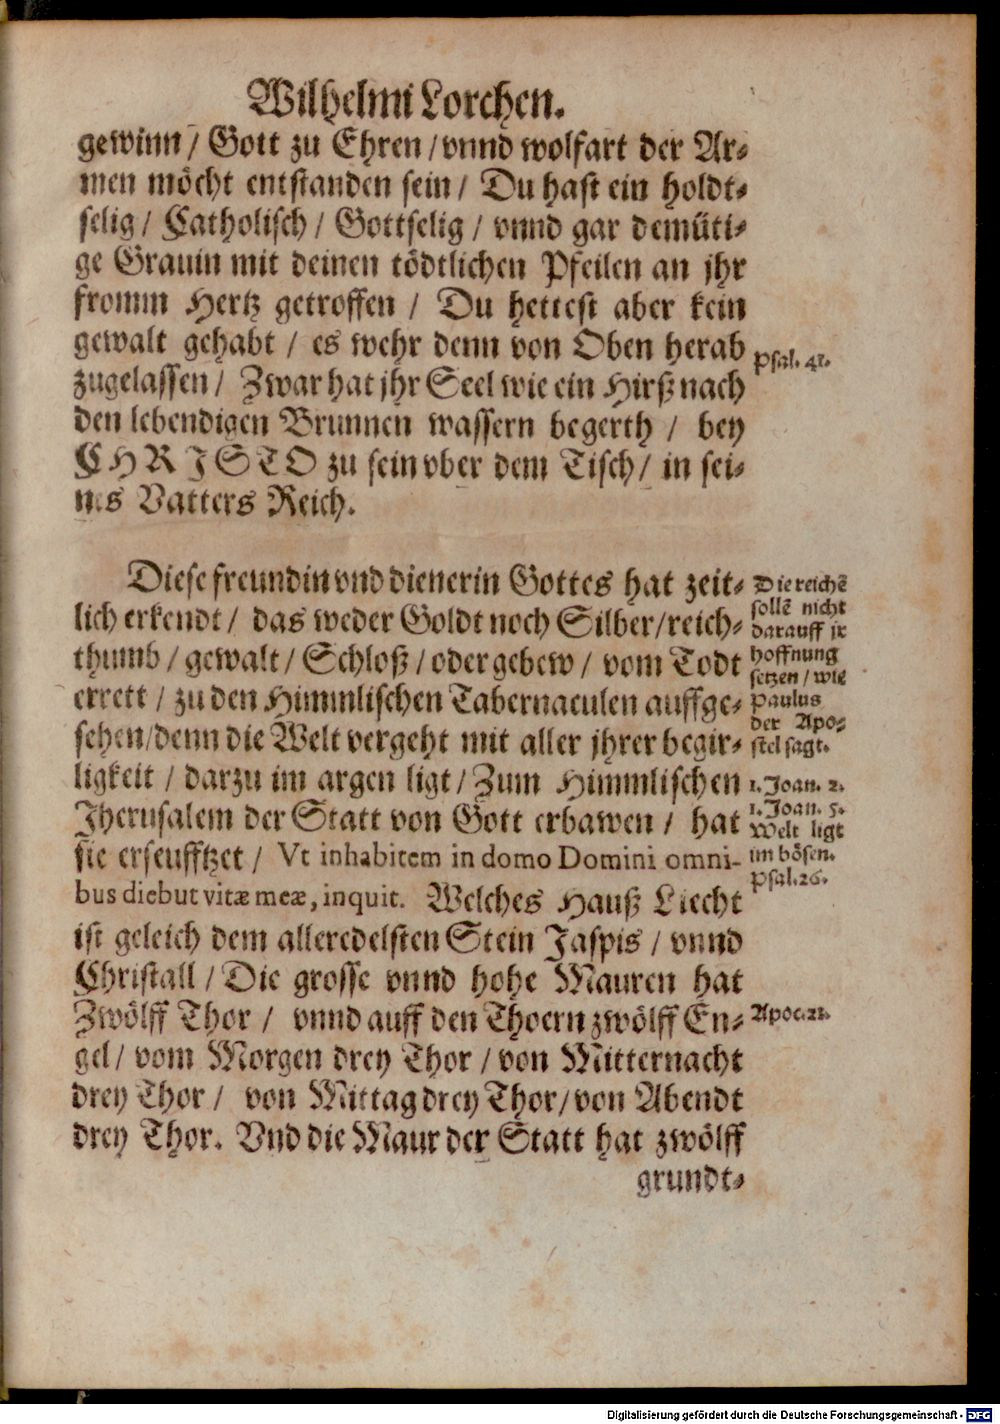 Wilhelmi Lorchen.
gewinn / Gott zu Ehren / vnnd wolfart der Ar-
men möcht entstanden sein / Du hast ein holdt-
selig / Catholisch / Gottselig / vnnd gar demüti-
ge Grauin mit deinen tödtlichen Pfeilen an jhr
fromm Hertz getroffen / Du hettest aber kein
gewalt gehabt / es wehr denn von Oben herab
zugelassen / Zwar hat jhr Seel wie ein Hirß nach
den lebendigen Brunnen wassern begerth / bey
CHRISTO zu sein vber dem Tisch / in sei-
nes Vatters Reich.
Psal. 41.
Diese freundin vnd dienerin Gottes hat zeit-
lich erkendt / das weder Goldt noch Silber / reich-
thumb / gewalt / Schloß / oder gebew / vom Todt
errett / zu den Himmlischen Tabernaculen auffge-
sehen / denn die Welt vergeht mit aller jhrer begir-
ligkeit / darzu im argen ligt / Zum Himmlischen
Jherusalem der Statt von Gott erbawen / hat
sie erseufftzet / Vt inhabitem in domo Domini omni-
bus diebut vitæ meæ, inquit. Welches Hauß Liecht
ist geleich dem alleredelsten Stein Jaspis / vnnd
Christall / Die grosse vnnd hohe Mauren hat
Zwölff Thor / vnnd auff den Thoern zwölff En-
gel / vom Morgen drey Thor / von Mitternacht
drey Thor / von Mittag drey Thor / von Abendt
drey Thor. Vnd die Maur der Statt hat zwölff
grundt-
Die reichẽ
sollẽ nicht
darauff jr
hoffnung
setzen / wie
Paulus
der Apo-
stel sagt.
1. Joan. 2.
1. Joan. 5.
Welt ligt
im bösen.
Psal. 26.
Apoc. 21.
Digitalisierung gefördert durch die Deutsche Forschungsgemeinschaft - DFG